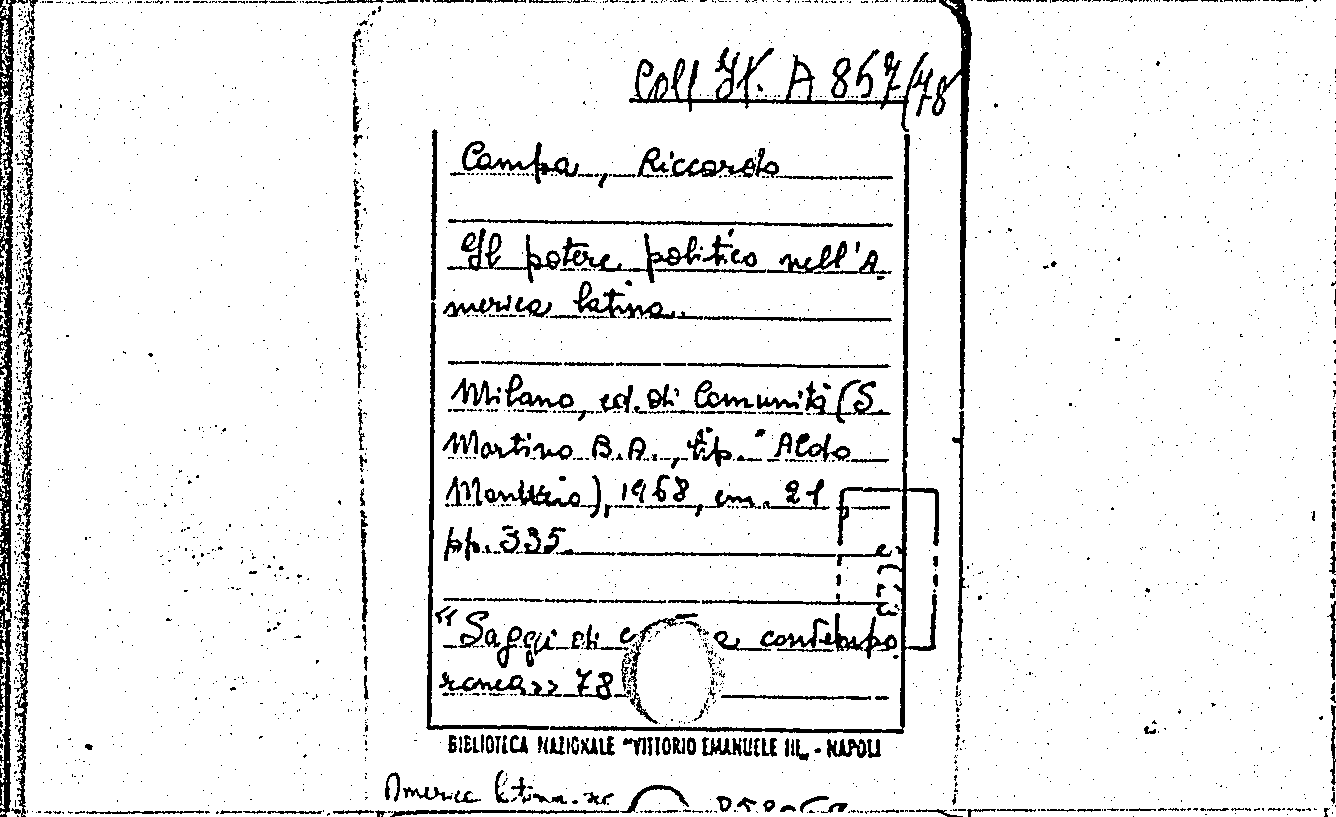 Coll It. A 857/78
Campa, Riccardo
Il potere politico nell'A
merica latina.
Milano, ed. di Comunità (S.
Martino B.A., tip. "Aldo
Manuzio), 1968, cm. 21,
pp. 335.
"Saggi di contempo
ranea>> 78
BIBLIOTECA NAZIONALE "VITTORIO EMANUELE III„ - NAPOLI
America latina.